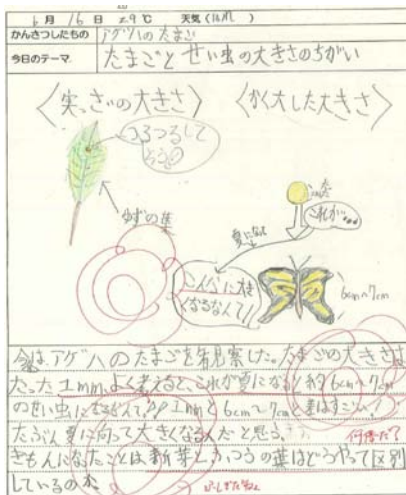 6月 16日 29℃ 天気(晴れ)
かんさつしたもの アゲハのたまご
今日のテーマ たまごとせい虫の大きさのちがい
〈実さいの大きさ〉 〈かく大した大きさ〉
つるつるして
そう
ゆずの葉
これが…
夏になると
こんなに大き
くなるなんて!
6cm〜7cm
今日は、アゲハのたまごを観察した。たまごの大きさは、
たった1mm。よく考えると、これが夏になると約6cm〜7cm
のせい虫になるなんて。1mmと6cm〜7cmと差はすごい。
たぶん夏に向って大きくなるんだと思う。
何倍だ?
ぎもんになったことは、新芽とふつうの葉はどうやって区別
しているのか。
ふしぎだねぇ